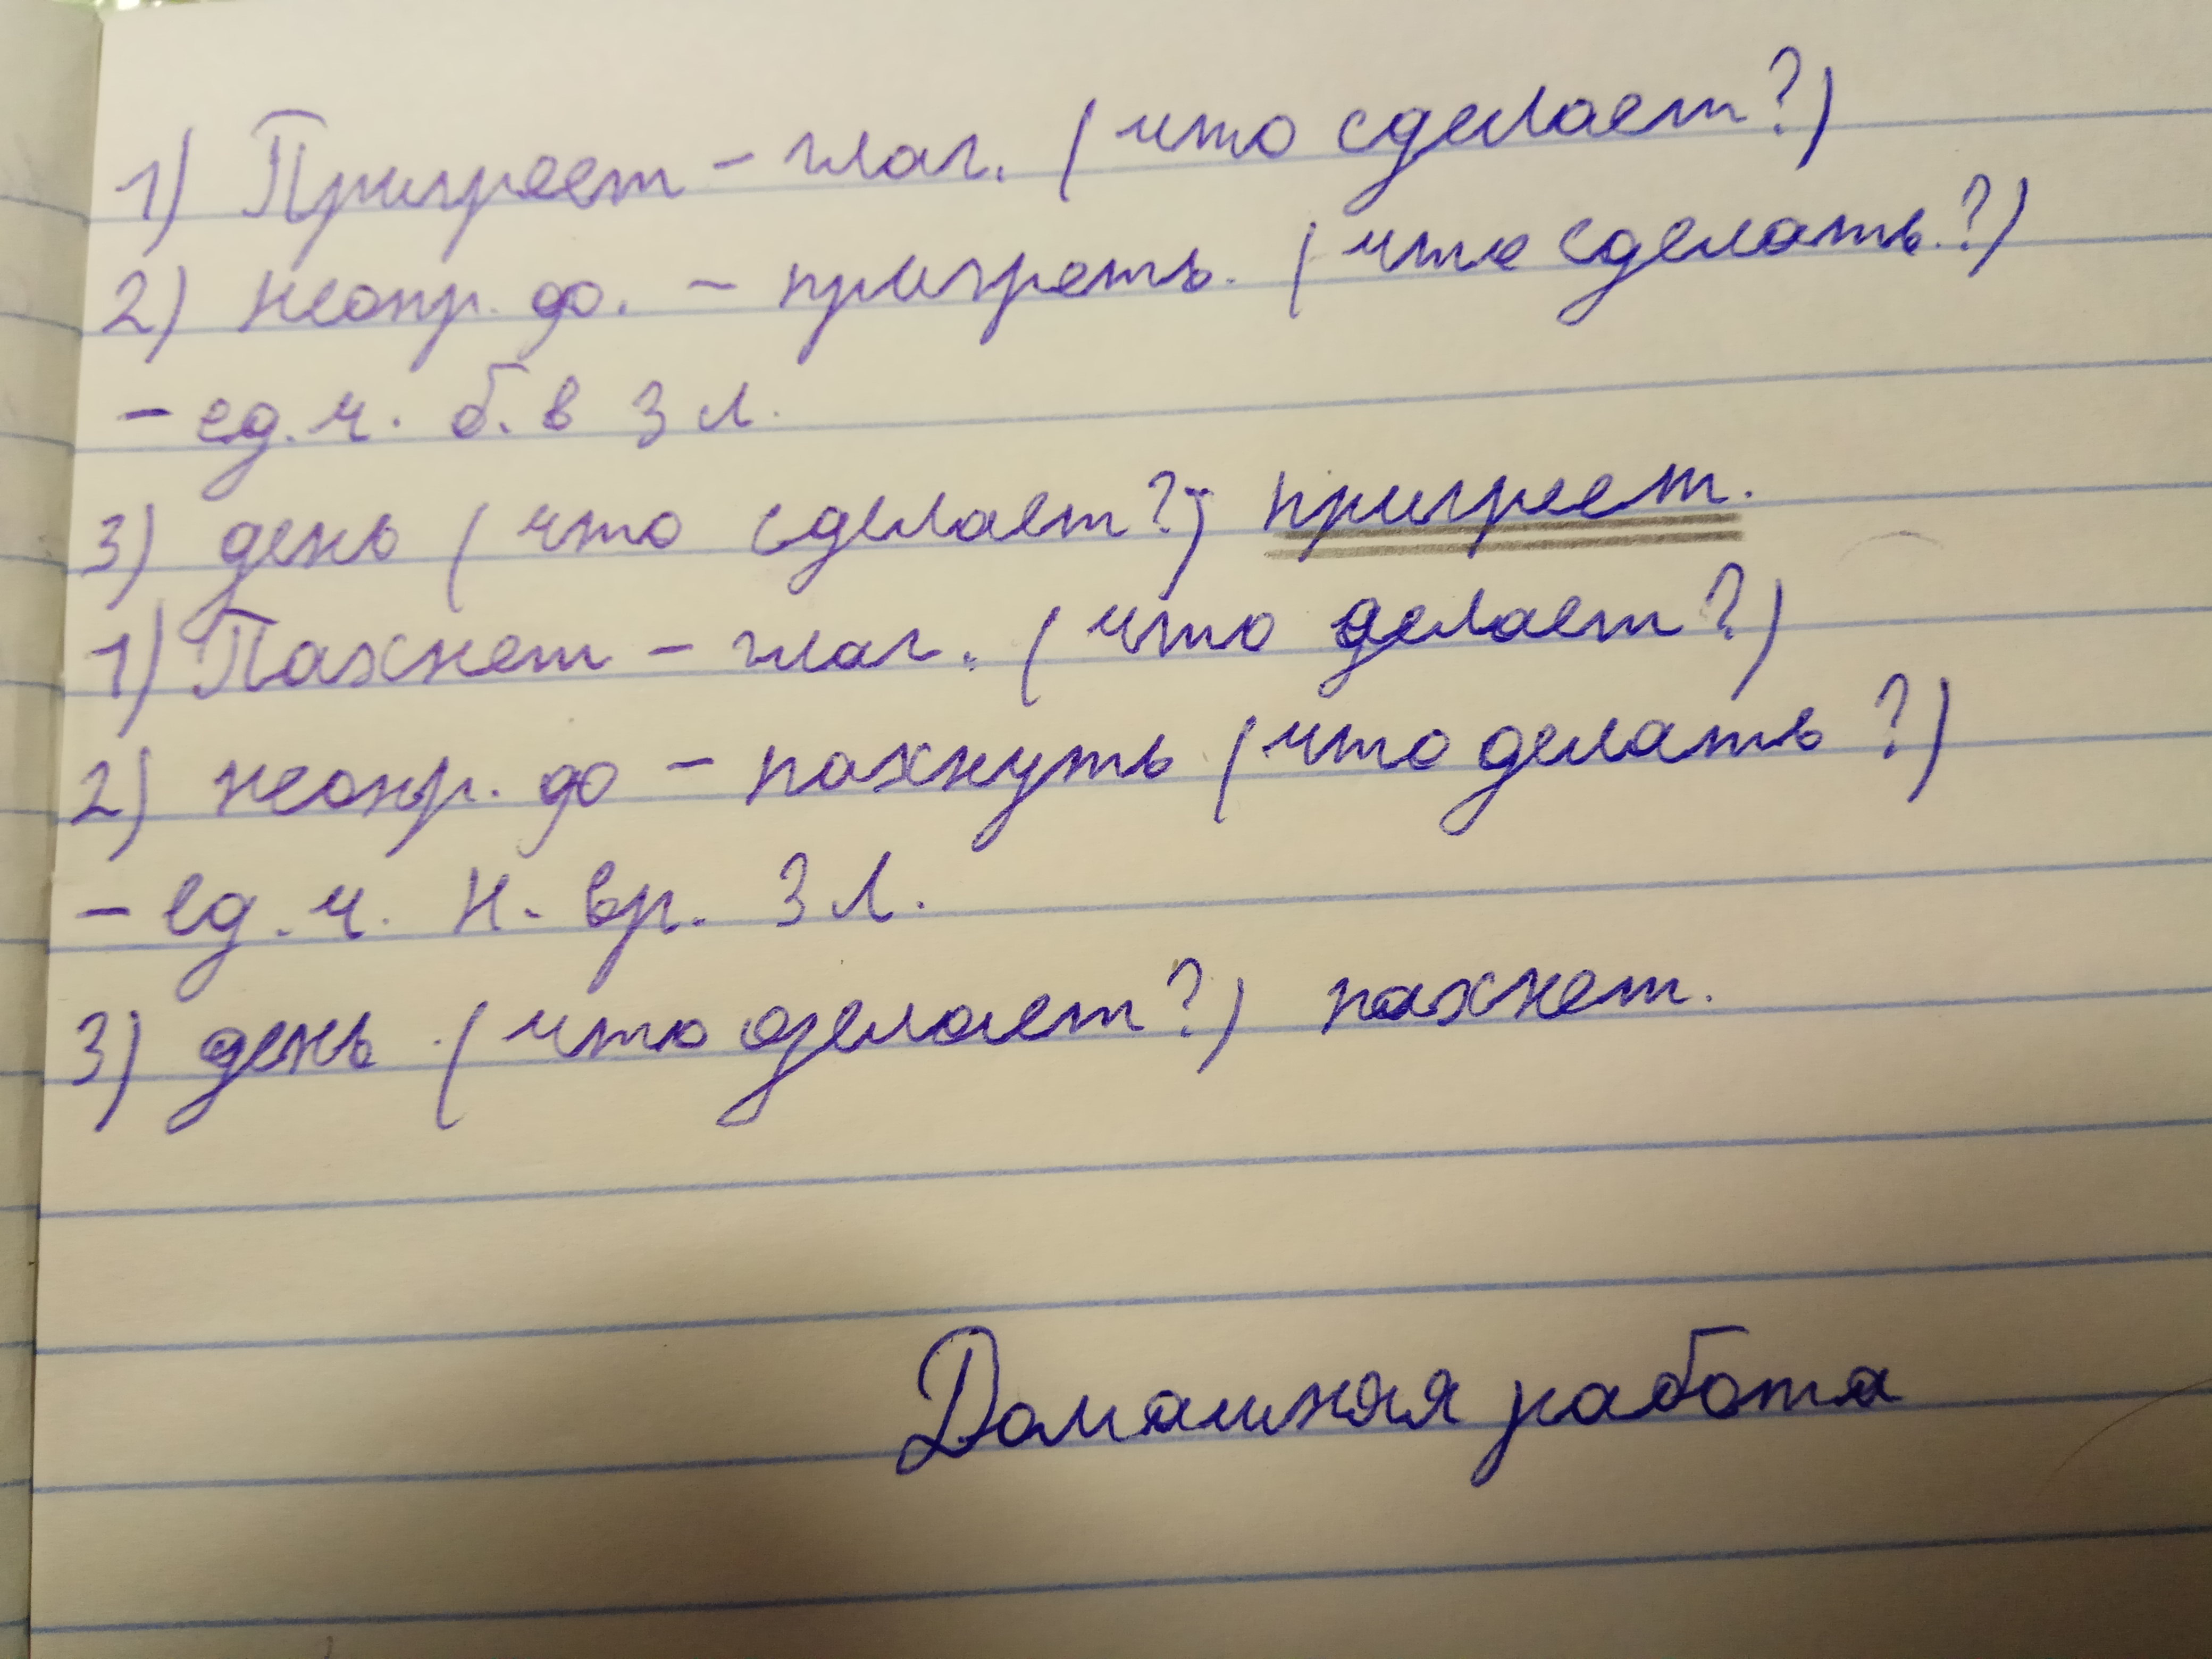 1) Пригреет - глаг. (что сделает?)
2) неопр. ф. - пригреть. (что сделать?)
- ед. ч. б. в 3 л.
3) день (что сделает?) пригреет.
1) Пахнет - глаг. (что делает?)
2) неопр. ф - пахнуть (что делать?)
- ед. ч. н. вр. 3 л.
3) день (что делает?) пахнет.
Домашняя работа